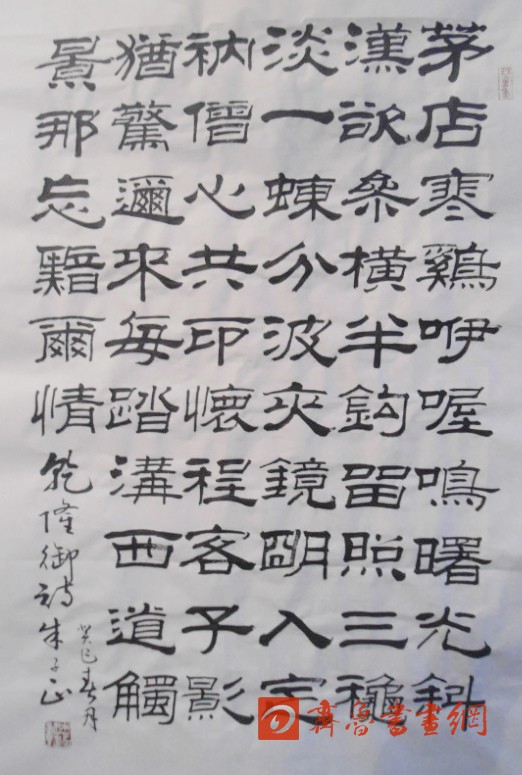 茅店寒鷄咿喔鳴曙光斜
漢欲參橫半鉤留照三穐
淡一蝀分波夾鏡朙入定
衲僧心共印懷程客子影
猶驚邇來每踏溝西道觸
景那忘黯爾情乾隆御詩朱子正
癸巳春月
齊魯書畫網